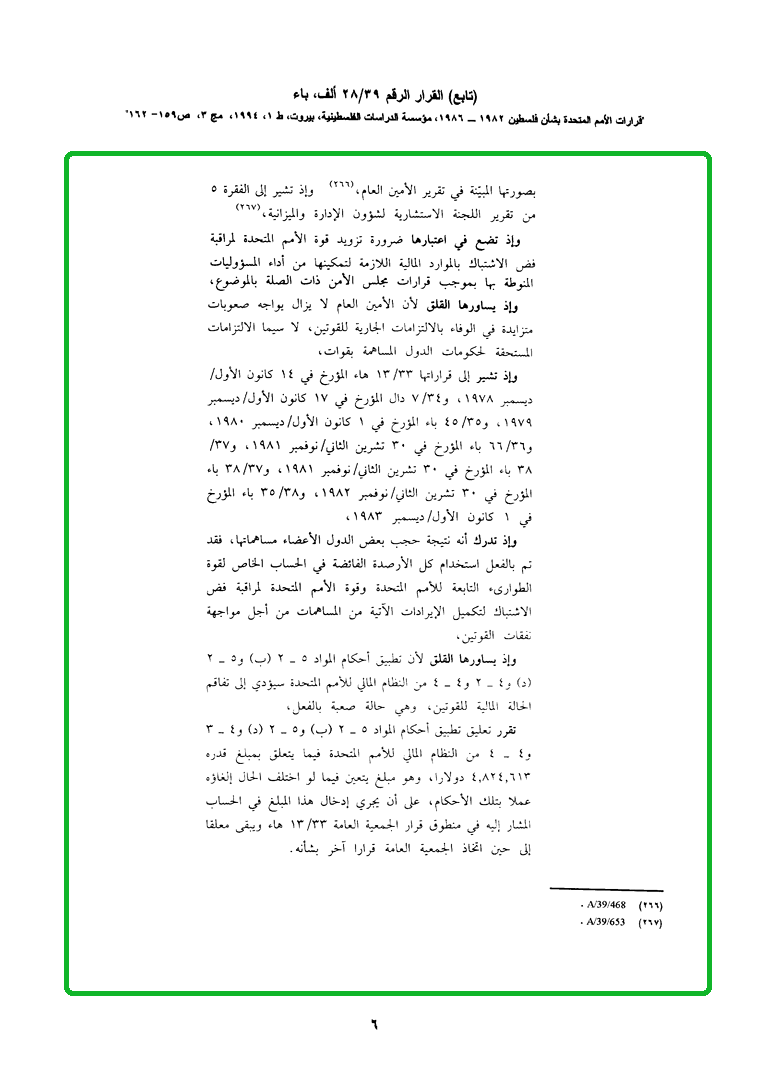 (تابع) القرار الرقم ٢٨/٣٩ ألف، باء
"قرارات الأمم المتحدة بشأن فلسطين ١٩٨٢ ــ ١٩٨٦، مؤسسة الدراسات الفلسطينية، بيروت، ط ١، ١٩٩٤، مج ٣، ص١٥٩- ١٦٢"
بصورتها المبيّنة في تقرير الأمين العام،(٢٦٦) وإذ تشير إلى الفقرة ٥
من تقرير اللجنة الاستشارية لشؤون الإدارة والميزانية،(٢٦٧)
وإذ تضع في اعتبارها ضرورة تزويد قوة الأمم المتحدة لمراقبة
فض الاشتباك بالموارد المالية اللازمة لتمكينها من أداء المسؤوليات
المنوطة بها بموجب قرارات مجلس الأمن ذات الصلة بالموضوع،
وإذ يساورها القلق لأن الأمين العام لا يزال يواجه صعوبات
متزايدة في الوفاء بالالتزامات الجارية للقوتين، لا سيما الالتزامات
المستحقة لحكومات الدول المساهمة بقوات،
وإذ تشير إلى قراراتها ١٣/٣٣ هاء المؤرخ في ١٤ كانون الأول/
ديسمبر ١٩٧٨، و٧/٣٤ دال المؤرخ في ١٧ كانون الأول/ديسمبر
١٩٧٩، و٤٥/٣٥ باء المؤرخ في ١ كانون الأول/ديسمبر ١٩٨٠،
و٦٦/٣٦ باء المؤرخ في ٣٠ تشرين الثاني/نوفمبر ١٩٨١، و٣٧/
٣٨ باء المؤرخ في ٣٠ تشرين الثاني/نوفمبر ١٩٨١، و٣٨/٣٧ باء
المؤرخ في ٣٠ تشرين الثاني/نوفمبر ١٩٨٢، و٣٥/٣٨ باء المؤرخ
في ١ كانون الأول/ديسمبر ١٩٨٣،
وإذ تدرك أنه نتيجة حجب بعض الدول الأعضاء مساهماتها، فقد
تم بالفعل استخدام كل الأرصدة الفائضة في الحساب الخاص لقوة
الطوارىء التابعة للأمم المتحدة وقوة الأمم المتحدة لمراقبة فض
الاشتباك لتكميل الإيرادات الآتية من المساهمات من أجل مواجهة
نفقات القوتين،
وإذ يساورها القلق لأن تطبيق أحكام المواد ٥ ــ ٢ (ب) و٥ ــ ٢
(د) و٤ ــ ٢ و٤ ــ ٤ من النظام المالي للأمم المتحدة سيؤدي إلى تفاقم
الحالة المالية للقوتين، وهي حالة صعبة بالفعل،
تقرر تعليق تطبيق أحكام المواد ٥ ــ ٢ (ب) و٥ ــ ٢ (د) و٤ ــ ٣
و٤ ــ ٤ من النظام المالي للأمم المتحدة فيما يتعلق بمبلغ قدره
٤,٨٢٤,٦١٣ دولارا، وهو مبلغ يتعين فيما لو اختلف الحال إلغاؤه
عملا بتلك الأحكام، على أن يجري إدخال هذا المبلغ في الحساب
المشار إليه في منطوق قرار الجمعية العامة ١٣/٣٣ هاء ويبقى معلقا
إلى حين اتخاذ الجمعية العامة قرارا آخر بشأنه.
(٢٦٦) A/39/468 .
(٢٦٧) A/39/653 .
٦